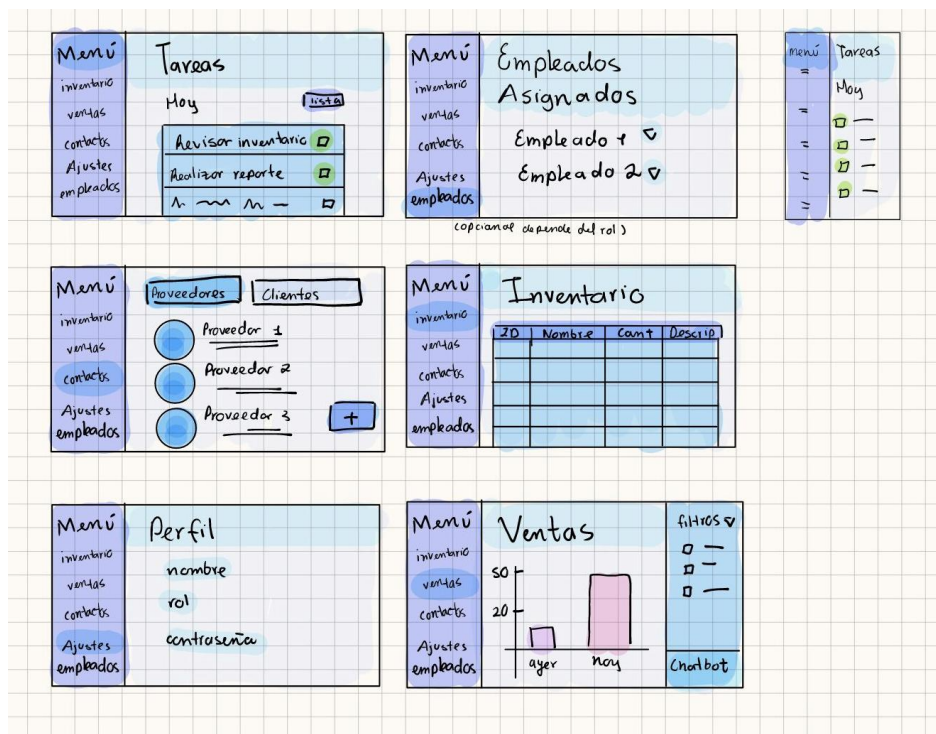 Menú
inventario
ventas
contactos
Ajustes
empleados
Tareas
Hoy
lista
Revisar inventario
Realizar reporte
Menú
inventario
ventas
contactos
Ajustes
empleados
Empleados
Asignados
Empleado 1
Empleado 2
(opcional depende del rol)
menú
Tareas
Hoy
Menú
inventario
ventas
contactos
Ajustes
empleados
Proveedores
Clientes
Proveedor 1
Proveedor 2
Proveedor 3
+
Menú
inventario
ventas
contactos
Ajustes
empleados
Inventario
ID Nombre Cant Descrip
Menú
inventario
ventas
contactos
Ajustes
empleados
Perfil
nombre
rol
contraseña
Menú
inventario
ventas
contactos
Ajustes
empleados
Ventas
50
20
ayer
hoy
filtros
Chatbot